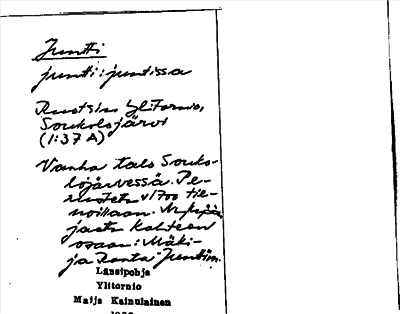 Juntti
juntti : juntissa
Ruotsin Ylitornio,
Soukolojärvi
(1:37 A)
Vanha talo Souko-
lojärvessä. Pe-
rustettu 1700 tie-
noillaan. Nykyään
jaettu kahteen
osaan: Mäki-
ja Ranta-Junttiin.
Länsipohja
Ylitornio
Maija Kainulainen